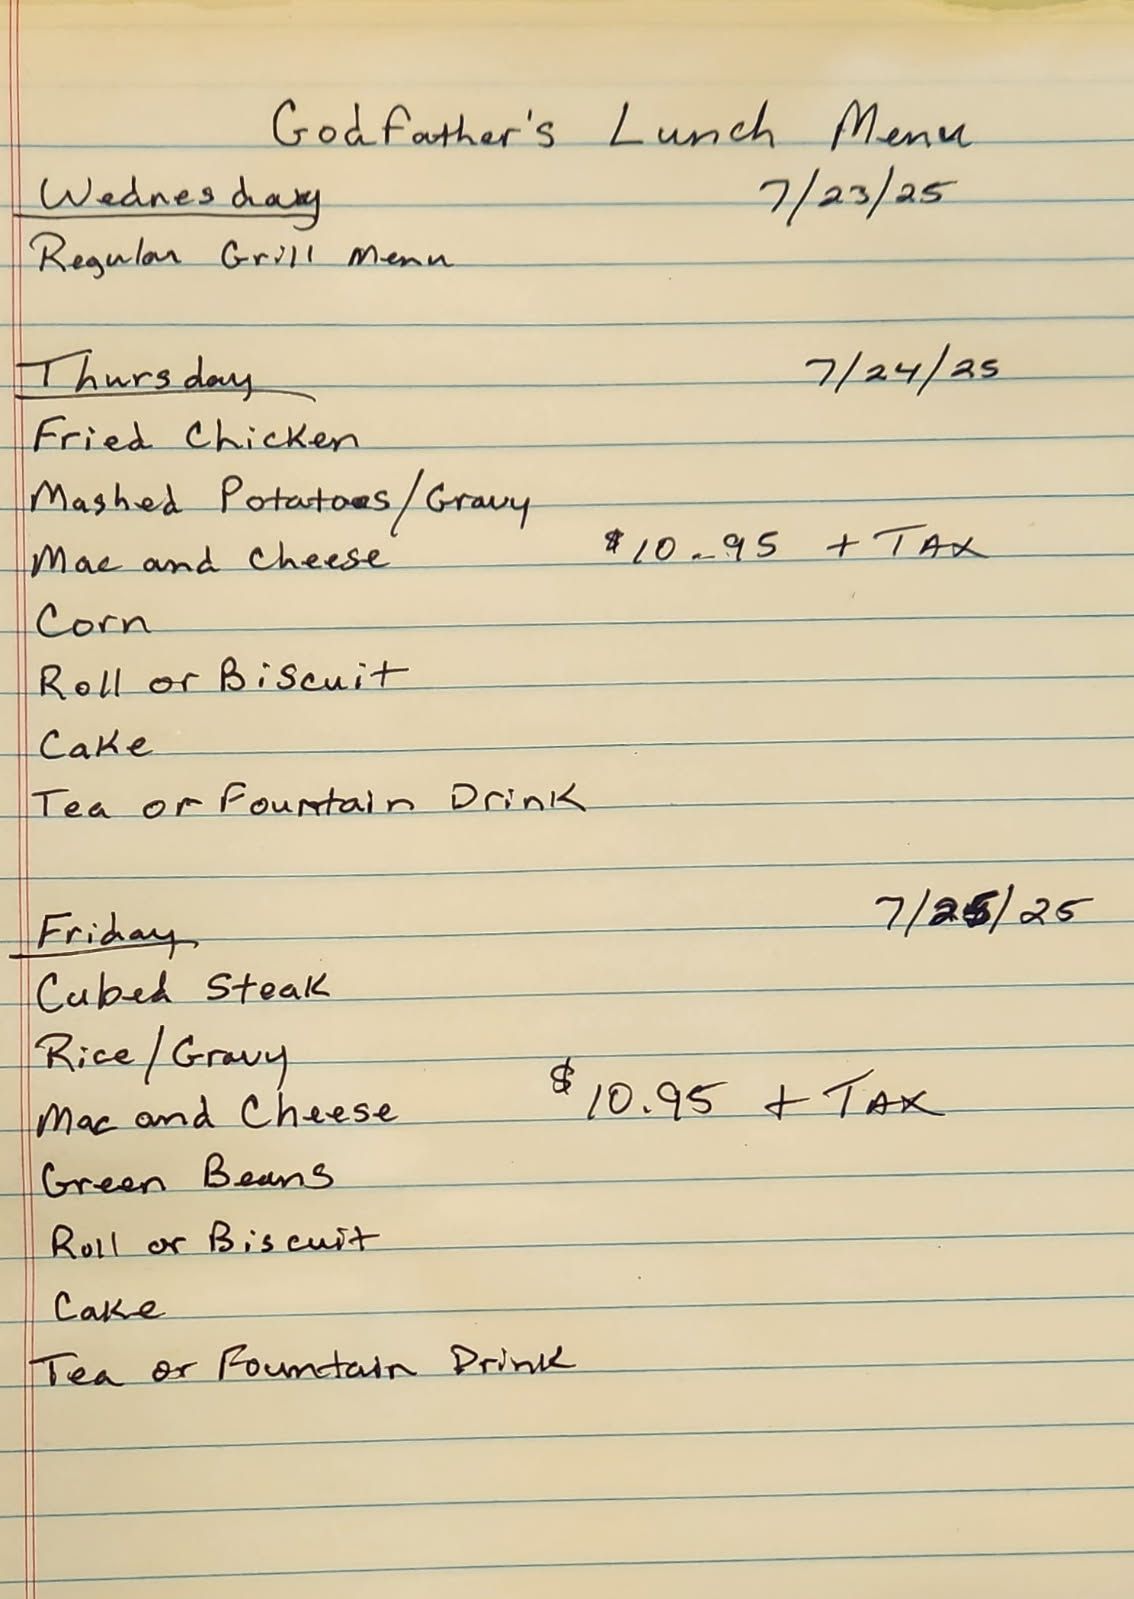 Godfather's Lunch Menu
Wednesday 7/23/25
Regular Grill Menu
Thursday 7/24/25
Fried Chicken
Mashed Potatoes/Gravy
Mac and Cheese $10.95 + TAX
Corn
Roll or Biscuit
Cake
Tea or Fountain Drink
Friday 7/25/25
Cubed Steak
Rice/Gravy
Mac and Cheese $10.95 + TAX
Green Beans
Roll or Biscuit
Cake
Tea or Fountain Drink